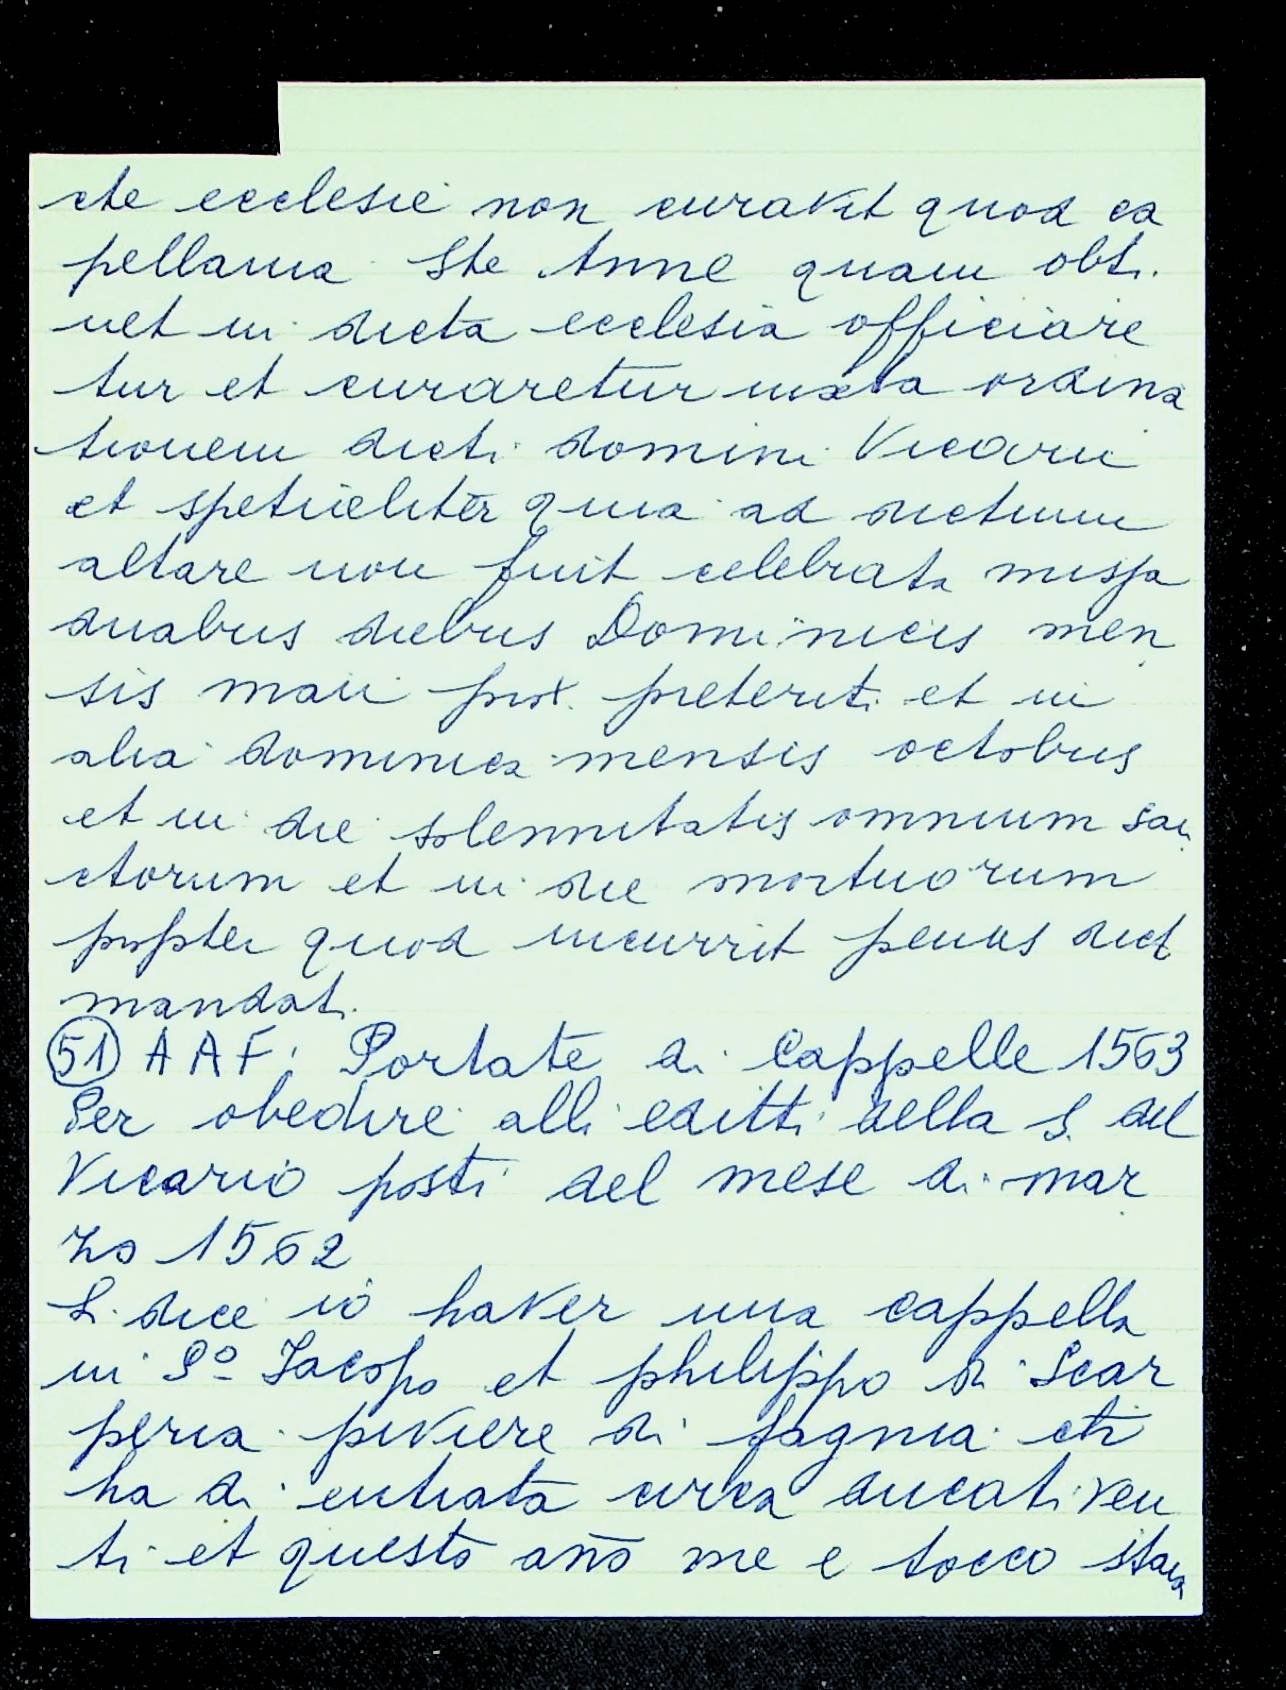 cte ecclesie non curavit quod ca
pellania Ste Anne quam obti
net in dicta ecclesia officiare
tur et curaretur iuxta ordina
tionem dicti domini Vicarii
et spetialiter quia ad dictum
altare non fuit celebrata missa
duabus diebus Dominicis men
sis maii prox. preteriti et in
alia dominica mensis octobris
et in die solennitatis omnium san
ctorum et in die mortuorum
propter quod incurrit penas dict
mandati.
(51) AAF: Portate di Cappelle 1563
Per obedire alli editti della S. del
Vicario posti del mese di mar
zo 1562
Si dice io haver una cappella
in Sº Jacopo et philippo di Scar
peria piviere di fagnia et
ha di entrata circa ducati ven
ti et questo año me e tocco staia